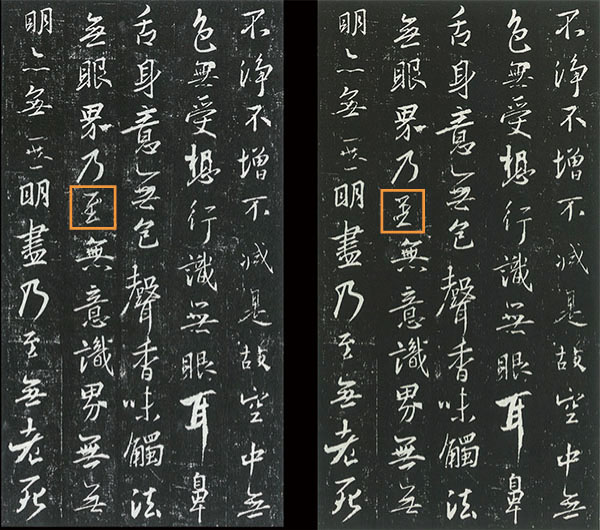 不淨不增不減是故空中無
色無受想行識無眼耳鼻
舌身意無色聲香味觸法
無眼界乃至無意識界無無
明亦無無明盡乃至無老死
不淨不增不減是故空中無
色無受想行識無眼耳鼻
舌身意無色聲香味觸法
無眼界乃至無意識界無無
明亦無無明盡乃至無老死